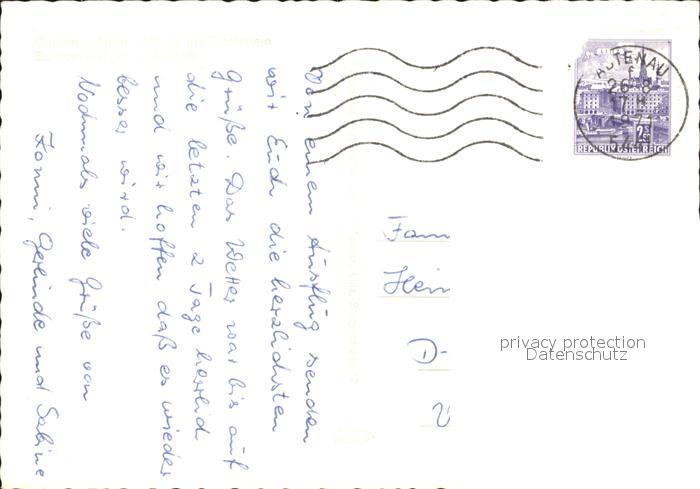 Von einem Ausflug senden
wir Euch die herzlichsten
Grüße. Das Wetter war bis auf
die letzten 2 Tage herrlich
und wir hoffen daß es wieder
besser wird.
Nochmals viele Grüße von
Gerlinde und Sabine
Fam
Hein
D-
AUTENAU
26-8
17 H
1971
2.50
REPUBLIK ÖSTERREICH
privacy protection
Datenschutz